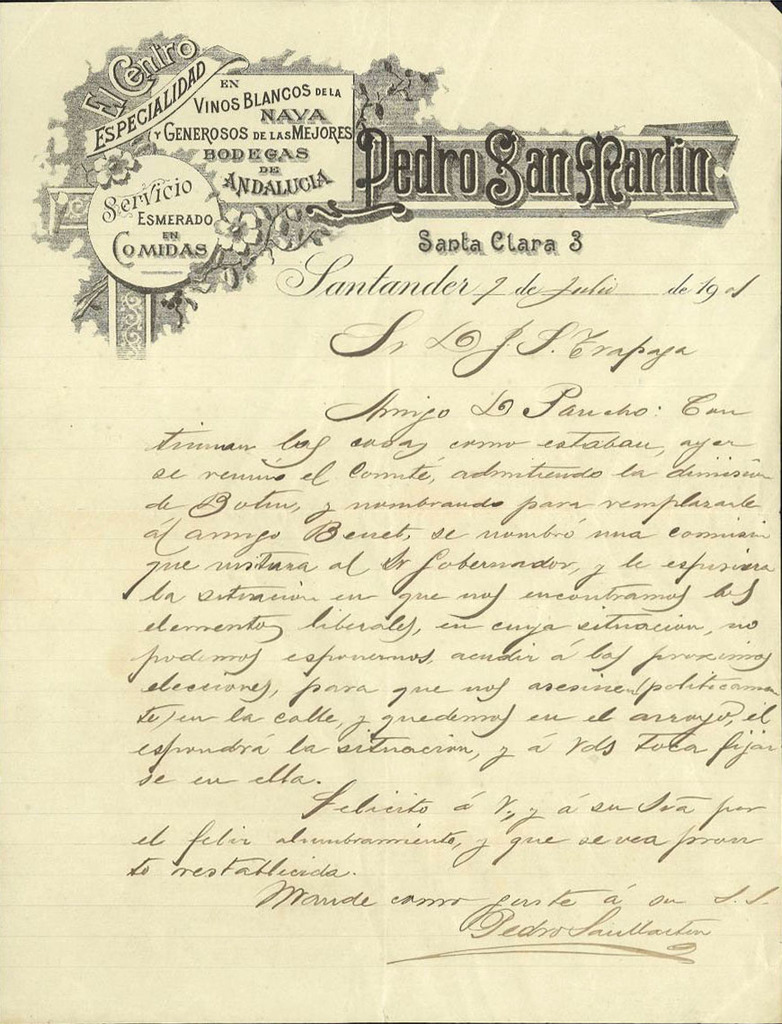 El Centro
ESPECIALIDAD
EN
VINOS BLANCOS DE LA
NAVA
Y GENEROSOS DE LAS MEJORES
BODEGAS
DE
ANDALUCIA
Servicio
ESMERADO
EN
COMIDAS
Pedro San Martin
Santa Clara 3
Santander 7 de Julio de 1901
Sr D J. S. Trapaga
Amigo D Pancho: Con
tinuan las cosas como estaban, ayer
se reunió el Comité, admitiendo la dimisión
de Botin, y nombrando para remplazarle
al amigo Benet, se nombró una comisión
que visitara al Sr Gobernador, y le espusiera
la situacion en que nos encontramos los
elementos liberales, en cuya situacion, no
podemos esponernos, acudir á las proximas
elecciones, para que nos asesinen (politicamen
te) en la calle, y quedemos en el arroyo, él
espondrá la situacion, y á Vds toca fijar
se en ella.
Felicito á V., y á su Srá por
el feliz alumbramiento, y que se vea pron
to restablecida.
Mande como guste á su S. S.
Pedro San Martin